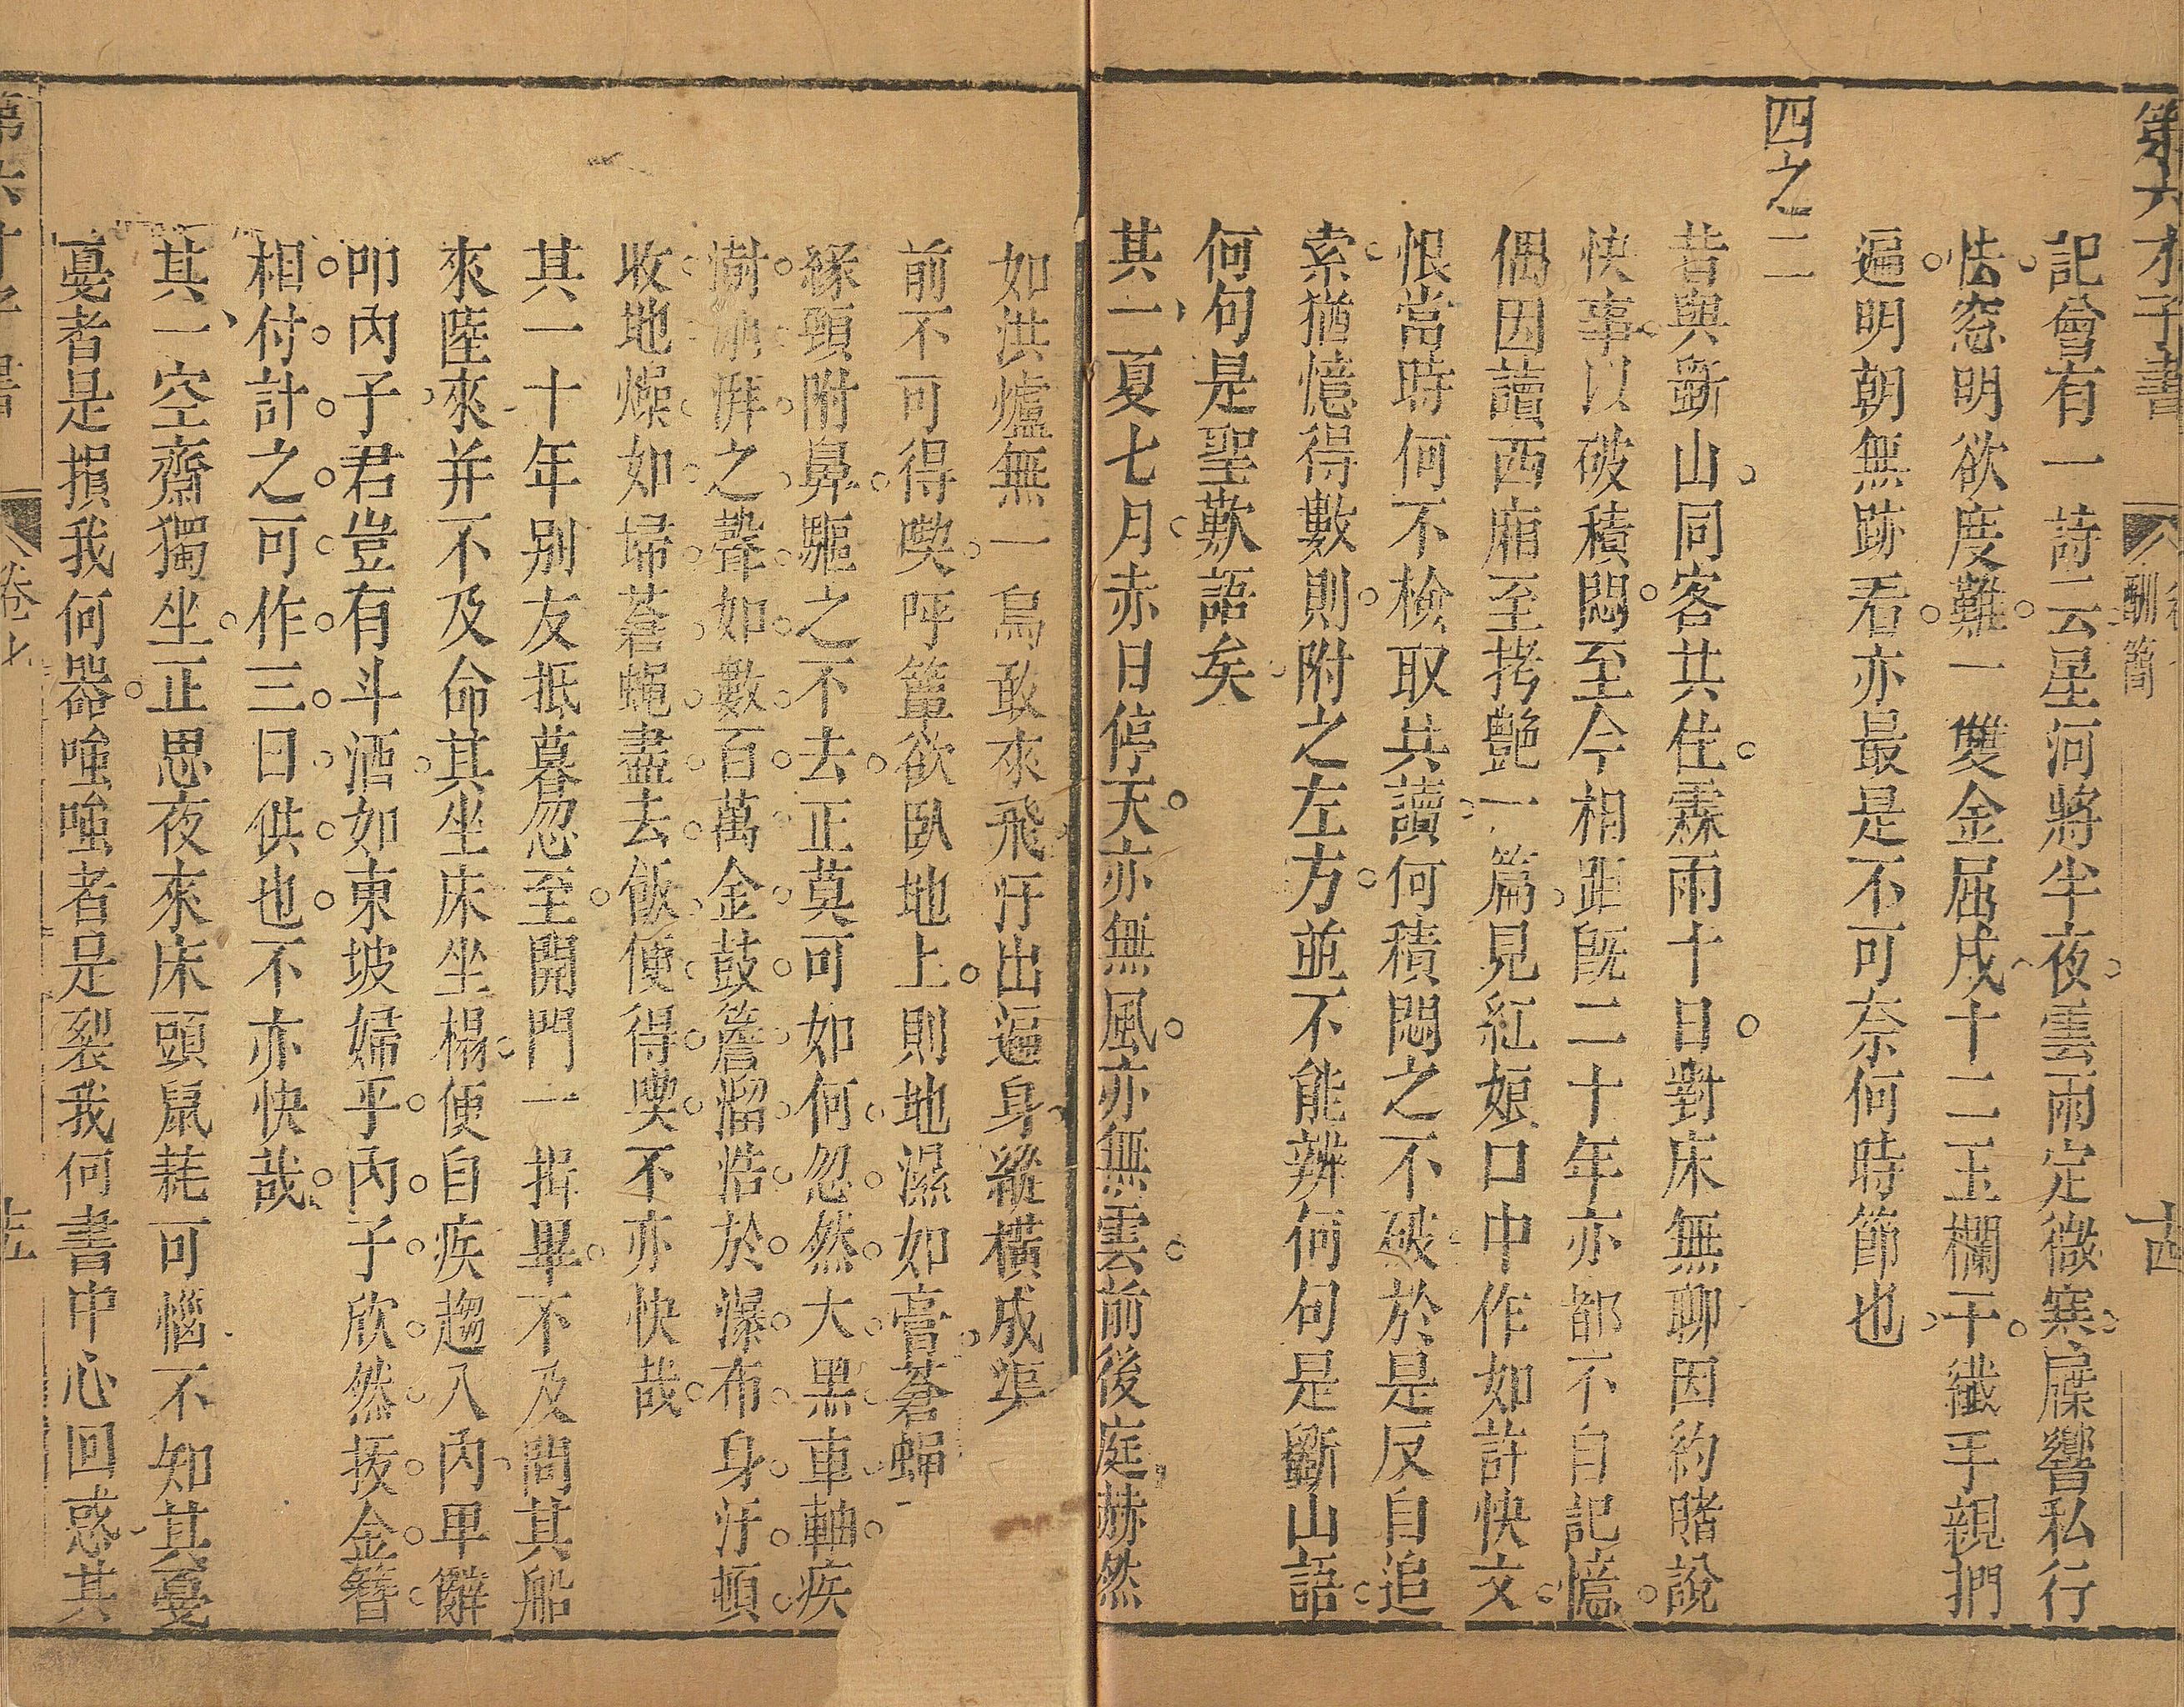 第六才子書
酬簡
十四
記曾有一詩云星河將半夜雲雨定微寒屧響私行
怯窓明欲度難一雙金屈戍十二玉欄干纖手親捫
遍明朝無跡看亦最是不可奈何時節也
四之二
昔與斲山同客共住霖雨十日對床無聊因約賭說
快事以破積悶至今相距既二十年亦都不自記憶
偶因讀西廂至拷艷一篇見紅娘口中作如許快文
恨當時何不檢取共讀何積悶之不破於是反自追
索猶憶得數則附之左方並不能辨何句是斲山語
何句是聖歎語矣
其一夏七月赤日停天亦無風亦無雲前後庭赫然
如洪爐無一鳥敢來飛汗出遍身縱橫成渠
前不可得喫呼簟欲臥地上則地濕如膏蒼蠅
緣頸附鼻驅之不去正莫可如何忽然大黑車軸疾
澍澎湃之聲如數百萬金鼓簷溜浩於瀑布身汗頓
收地燥如掃蒼蠅盡去飯便得喫不亦快哉
其一十年別友抵暮忽至開門一揖畢不及問其船
來陸來并不及命其坐床坐榻便自疾趨入內卑辭
叩內子君豈有斗酒如東坡婦乎內子欣然拔金簪
相付計之可作三日供也不亦快哉
其一空齋獨坐正思夜來床頭鼠耗可惱不知其戛
戛者是損我何器嗤嗤者是裂我何書中心回惑其
第六才子書
卷七